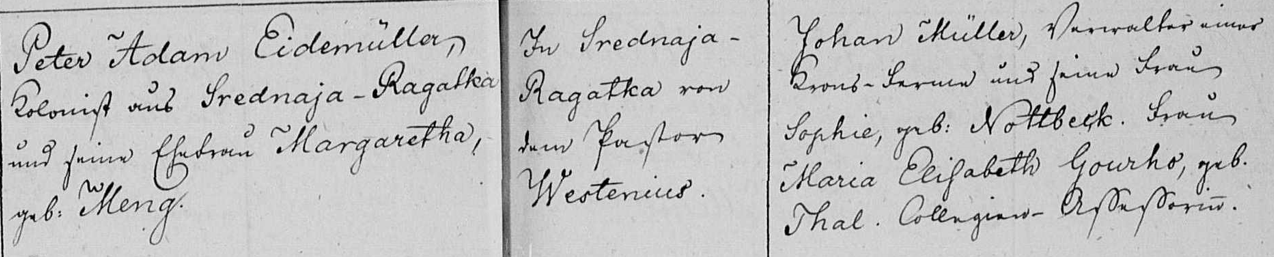 Peter Adam Eidemüller,
Kolonist aus Srednaja-Ragatka
und seine Ehefrau Margaretha,
geb: Meng.
In Srednaja-
Ragatka von
dem Pastor
Westenius.
Johan Müller, Verwalter einer
Krons-Ferme und seine Frau
Sophie, geb: Nottbeck. Frau
Maria Elisabeth Gourho, geb.
Thal. Collegien-Assessorin̄.